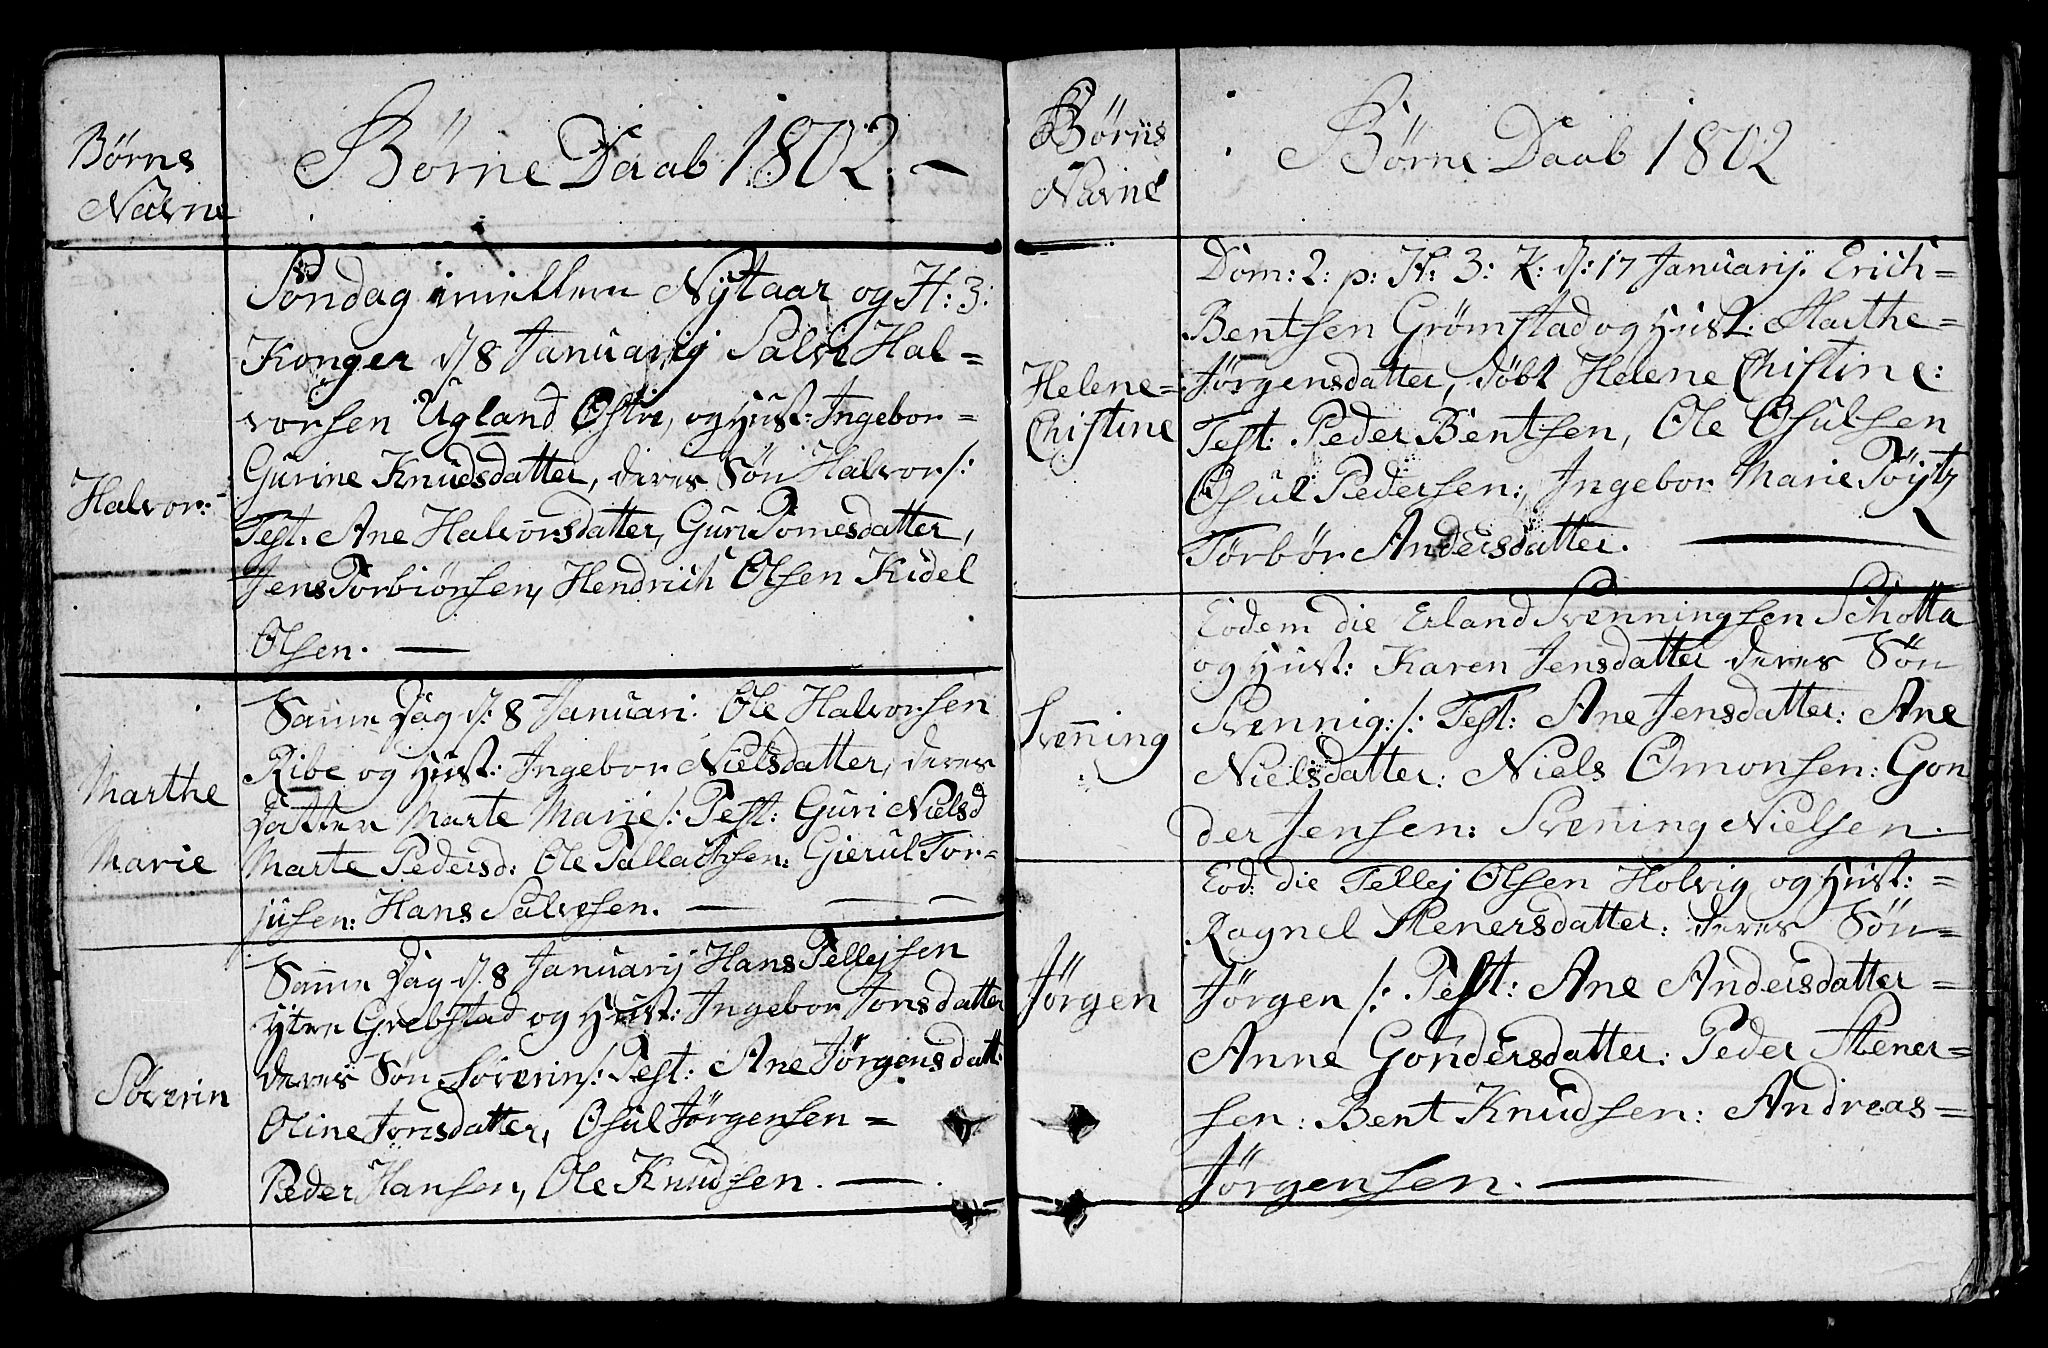 Børns
Navne
Børne Daab 1802. -
Halvor:
Søndag imellem Nÿtaar og H: 3:
Konger d/ 8 Januarij Salve Hal=
vorsen Ugland Østre, og Hust: Ingebor=
Gurine Knudsdatter, deres Søn Halvor /:
Test: Ane Halvorsdatter, Guri Tomesdatter,
Jens Torbiønsen, Hendrich Olsen Kidel
Olsen. —
Marthe
Marie
Samme Dag d/: 8 Januari: Ole Halvorsen
Ribe og Hust: Ingebor Nielsdatter, deres
Datter Marte Marie /: Test: Guri Nielsd
Marte Pedersd: Ole Tallachsen: Gierul Tor=
jusen: Hans Salvesen. — — —
Søverin
Samme Dag d/. 8 Januarij Hans Tellejsen
Ytre Grebstad og Hust: Ingebor Jonsdatter
deres Søn Søverin /: Test: Ane Jørgensdatt:
Oline Jonsdatter, Osul Jørgensen =
Peder Hansen, Ole Knudsen. —.
Børns
Navne
Børne Daab 1802
Helene=
Christine
Dom: 2: p: H: 3: K: d/: 17 Januarij. Erich=
Bentsen Grømstad og Hust: Marthe=
Jørgensdatter, døbt Helene Christine:
Test: Peder Bentsen, Ole Osulsen
Osul Pedersen: Ingebor Marie Töÿtz
Torbør Andersdatter. —
Svenning
Eodem die Erland Svenningsen Schotta
og Hust: Karen Jensdatter deres Søn
Svennig: /: Test: Ane Jensdatter: Ane
Nielsdatter: Niels Omonsen: Gon
der Jensen: Svening Nielsen.
Jørgen
Eod: die Tellej Olsen Holvig og Hust: =
Ragnel Stenersdatter: deres Søn=
Jørgen /: Test: Ane Andersdatter =
Anne Gondersdatter: Peder Stener=
sen: Bent Knudsen: Andreas=
Jørgensen. —